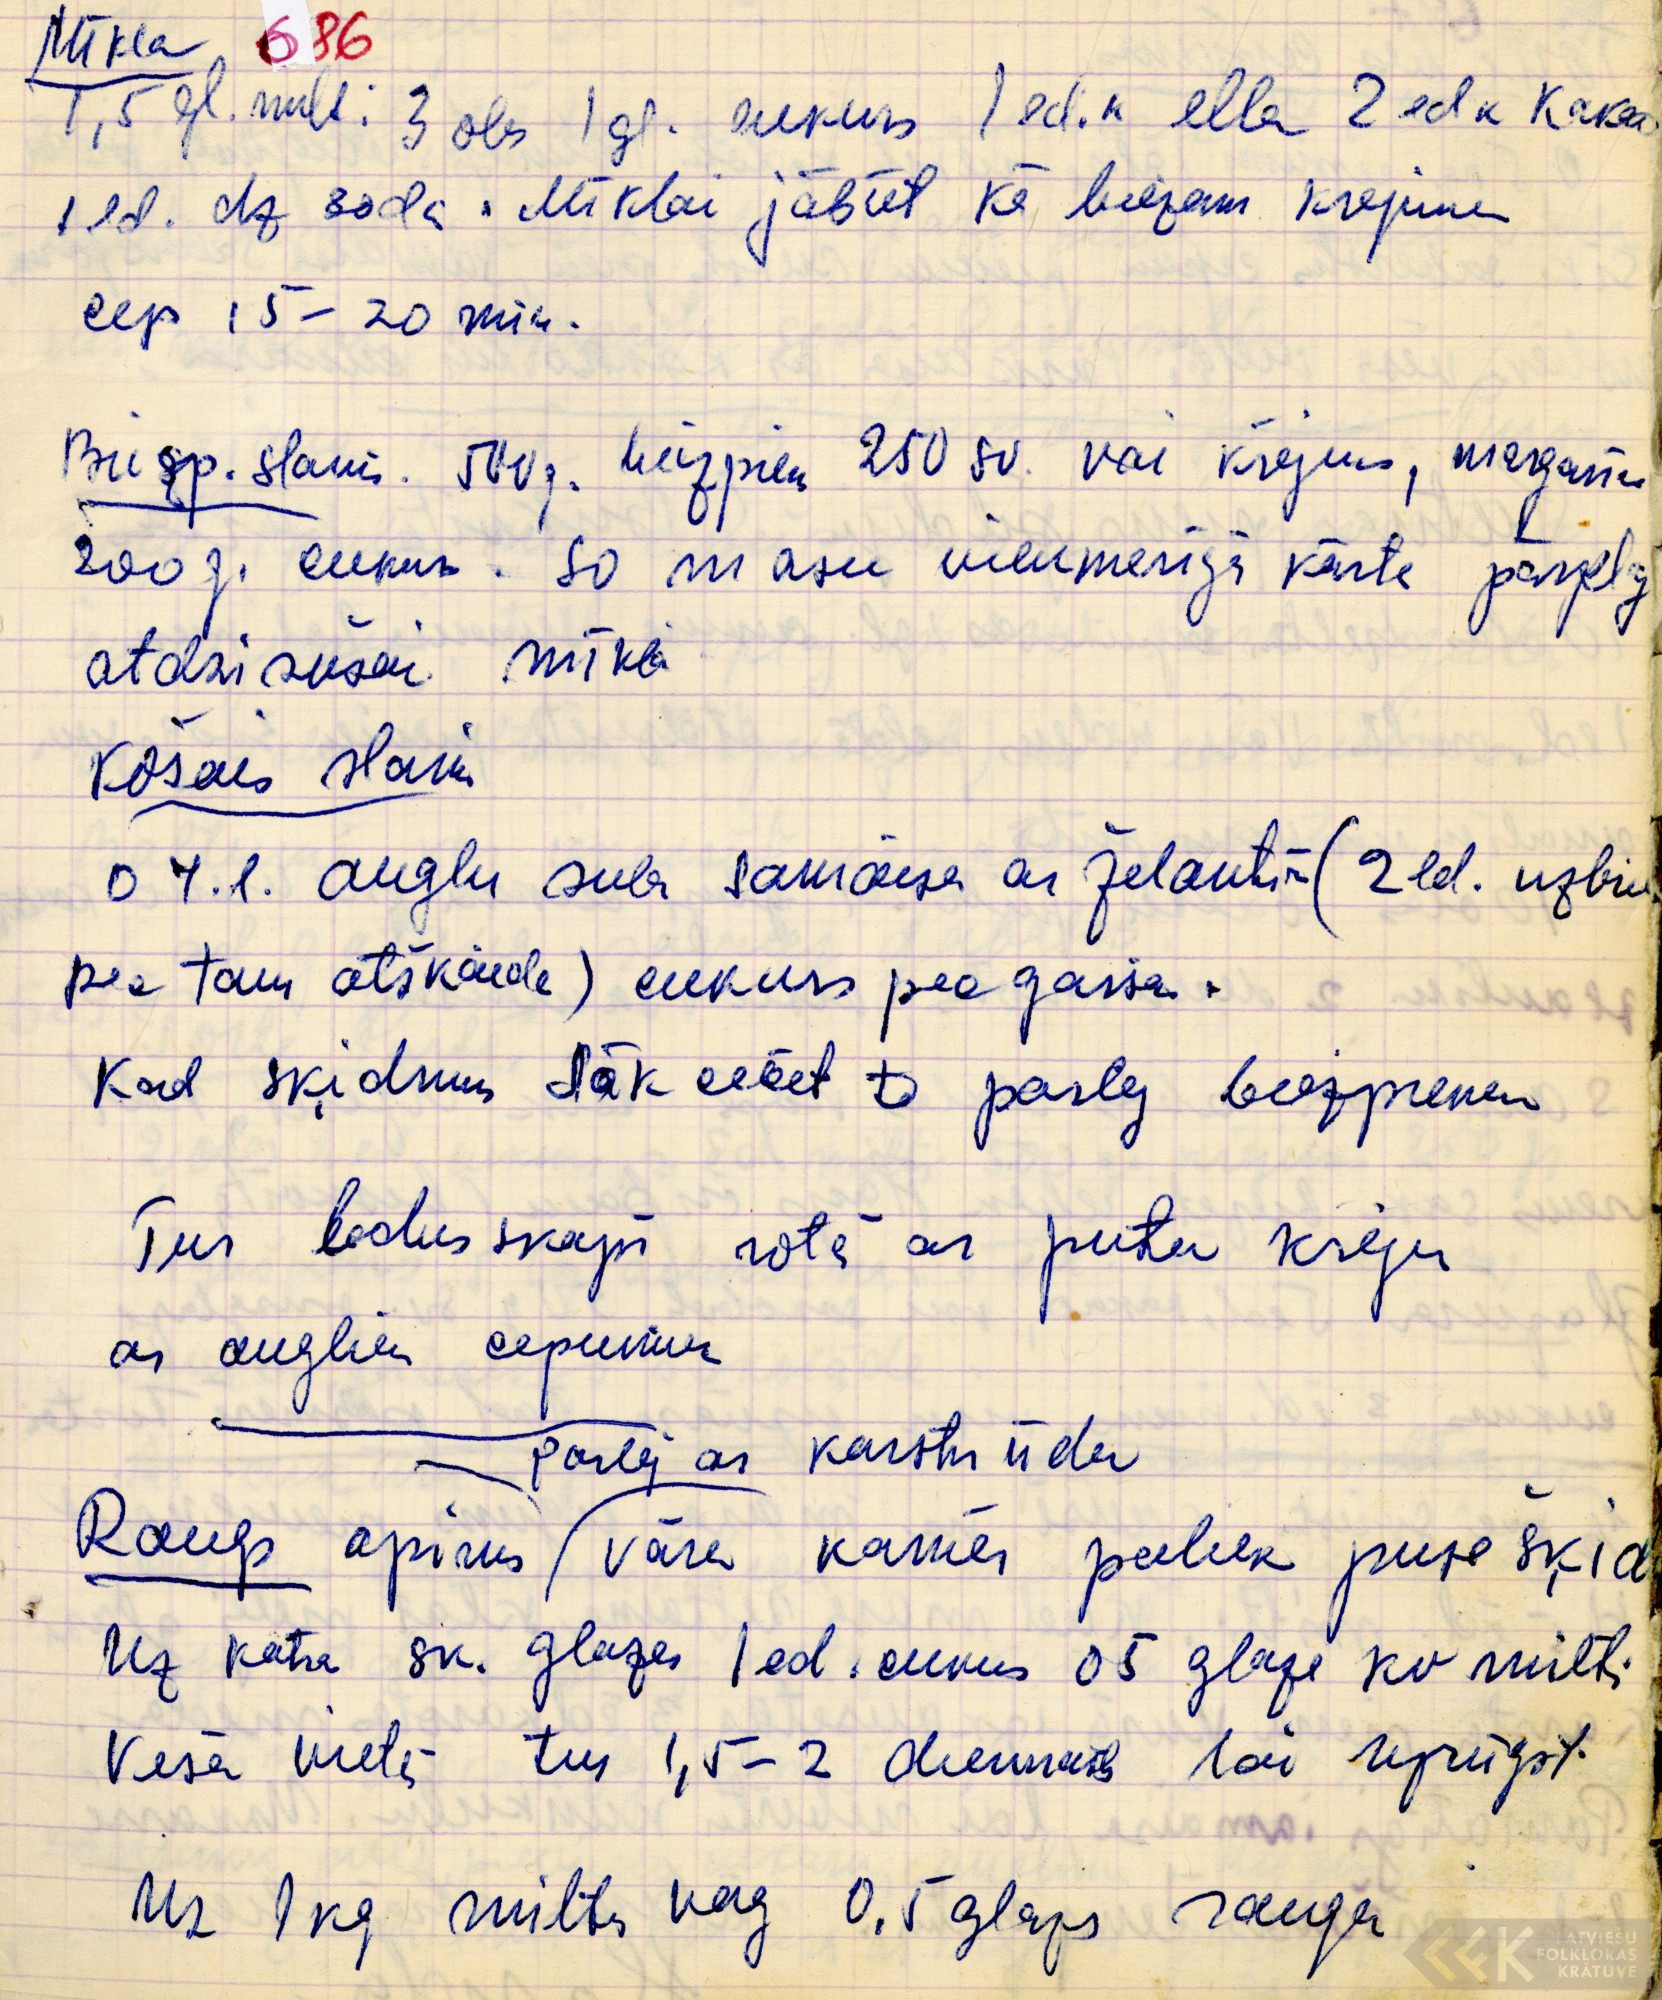 Mīkla 686
1,5 gl. milt. 3 olas 1 gl. cukurs 1 ed.k ella 2 ed k Kakao
1 ed. dz soda. Mīklai jābūt kā biezam krējumam
cep 15-20 min.
Biezp. slanis. 500 g. biezpien 250 sv. vai krējums, margarīns
200 g. cukurs. So masu vienmērīgā kārtā pārzelej
atdzisušai mīklai
Košais slanis
0 4. l. augļu sula samaisa ar želantīn (2 ed. uzbriedina
pec tam atškaida) cukurs pec garsas.
Kad sķidrums sāk cēēet to parlej biezpienam
Tur ledusskapī rotā ar putu krēju
ar augliem cepumiem
parlej ar karstu ūdeni
Raugs apiņus vāra kamēr paliek puse šķid
Uz katra sk. glazes 1 ed. cukurs 05 glaze kv milt.
Vēsā vietā tur 1,5-2 diennaktis lai uzrūgst.
Uz 1 kg miltu vag 0,5 glazes rauga
LATVIEŠU
FOLKLORAS
KRĀTUVE